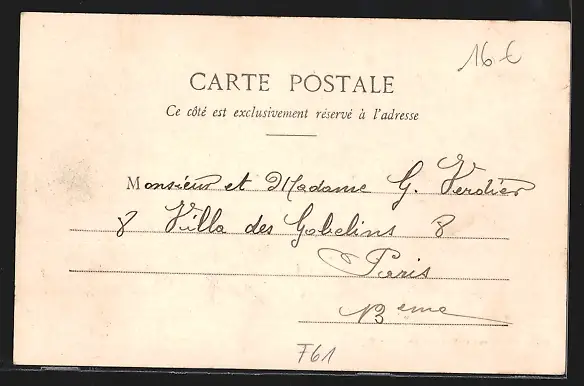 16 €
CARTE POSTALE
Ce côté est exclusivement réservé à l'adresse
Monsieur et Madame G. Verdier
8 Villa des Gobelins 8
Paris
13eme
F61